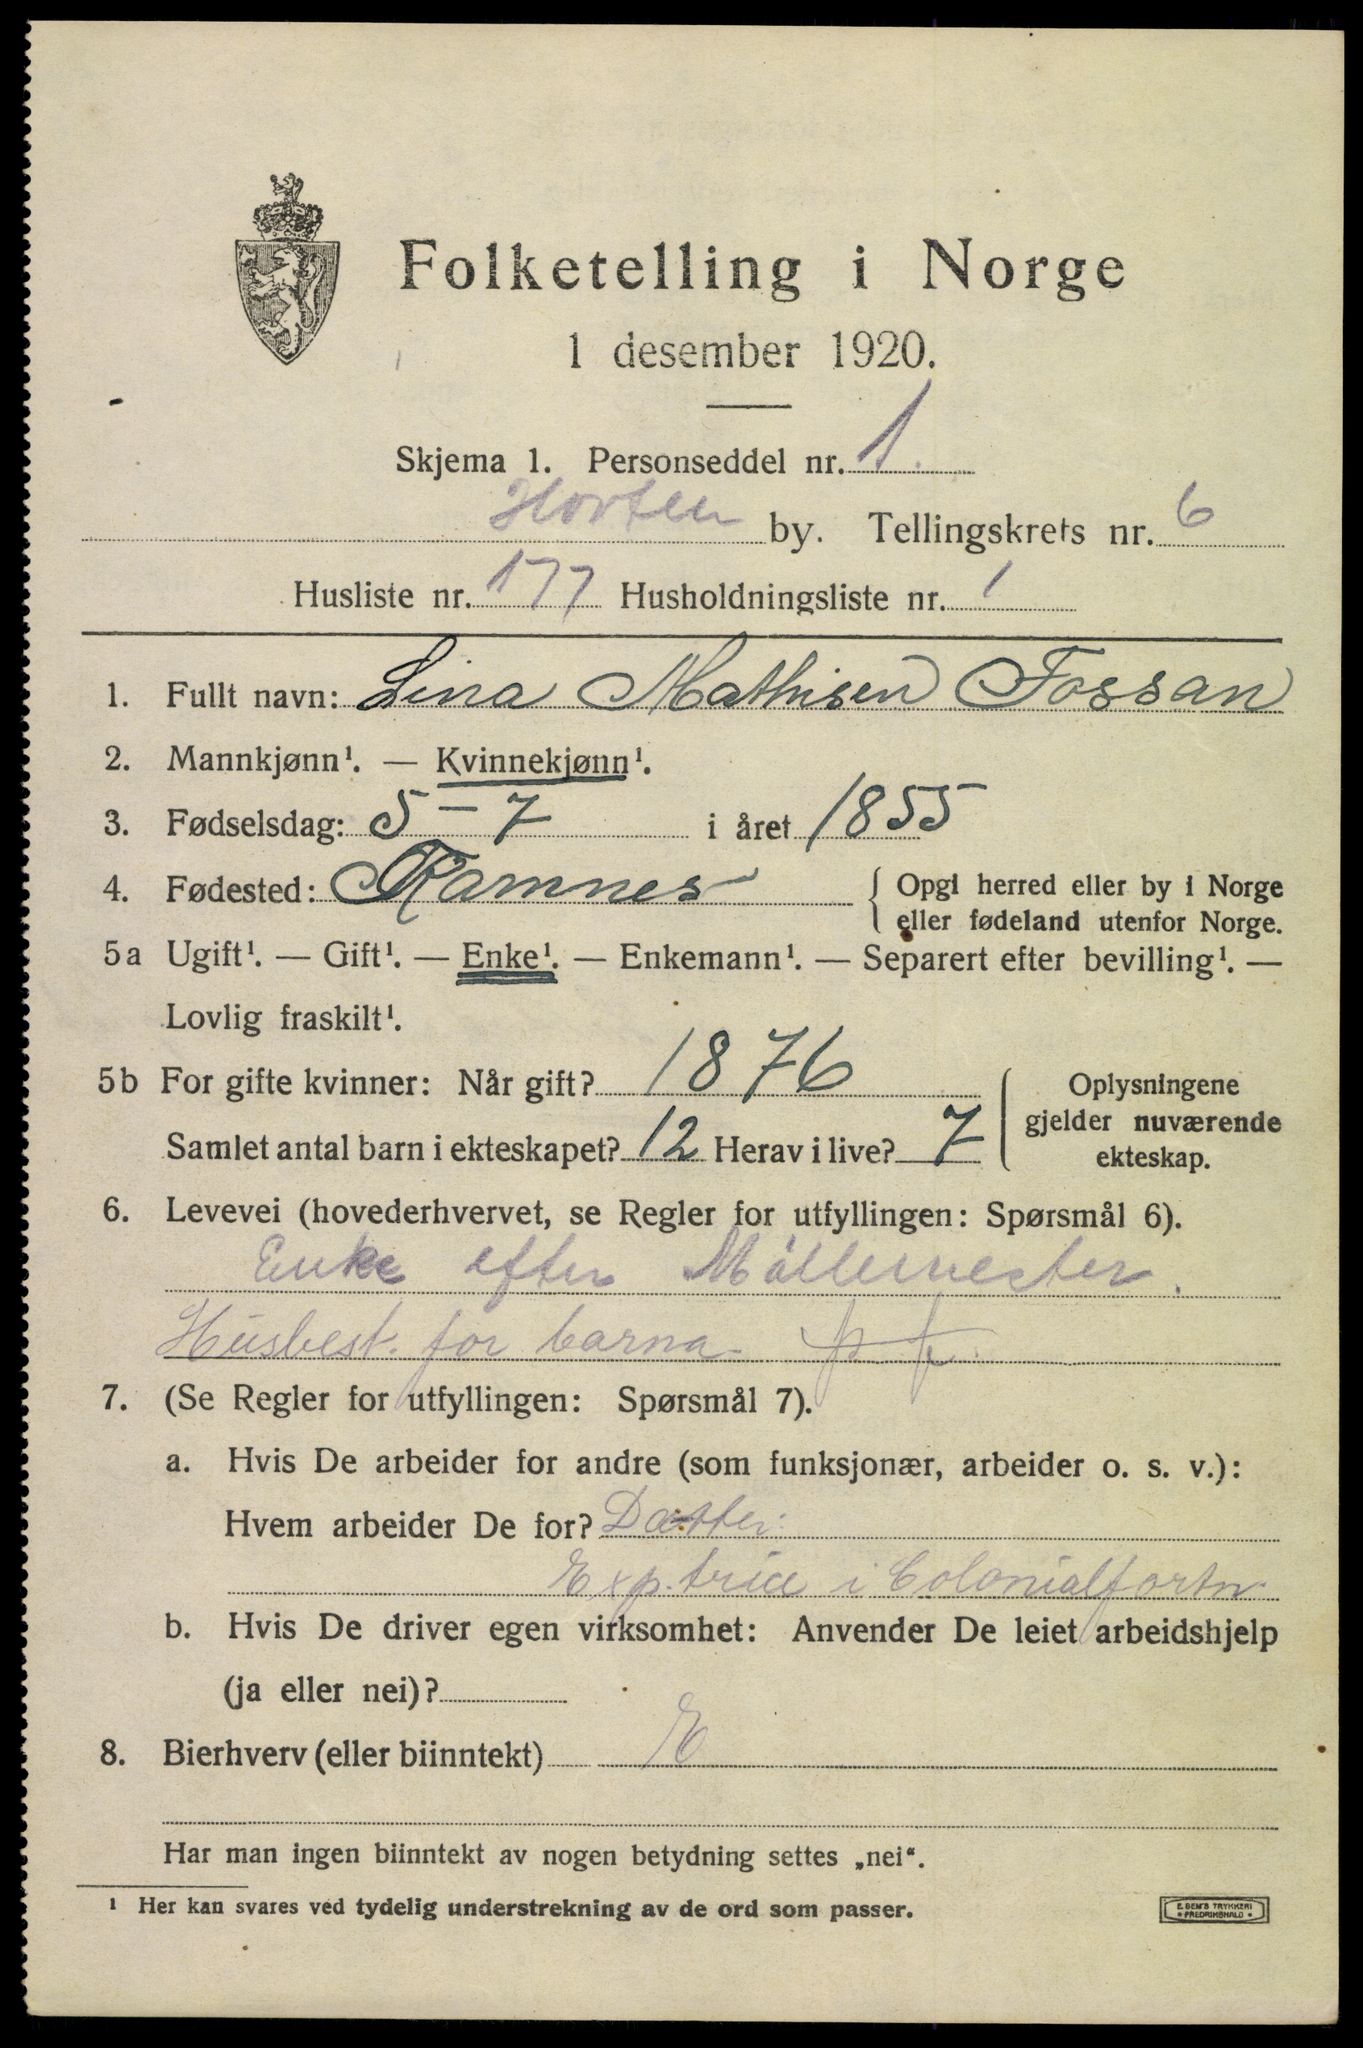 Folketelling i Norge
1 desember 1920.
Skjema 1. Personseddel nr. 1.
Horten by. Tellingskrets nr. 6
Husliste nr. 177 Husholdningsliste nr. 1
1. Fullt navn: Lina Mathisen Fossan
2. Mannkjønn¹. — Kvinnekjønn¹.
3. Fødselsdag: 5 - 7 i året 1855
4. Fødested: Ramnes { Opgi herred eller by i Norge
eller fødeland utenfor Norge.
5a Ugift¹. — Gift¹. — Enke¹. — Enkemann¹. — Separert efter bevilling¹. —
Lovlig fraskilt¹.
5b For gifte kvinner: Når gift? 1876
Samlet antal barn i ekteskapet? 12 Herav i live? 7
Oplysningene
gjelder nuværende
ekteskap.
6. Levevei (hovederhvervet, se Regler for utfyllingen: Spørsmål 6).
Enke efter Möllemester.
Husbest. for barna
7. (Se Regler for utfyllingen: Spørsmål 7).
a. Hvis De arbeider for andre (som funksjonær, arbeider o. s. v.):
Hvem arbeider De for? Datter:
Exp.trice i Colonialfortn.
b. Hvis De driver egen virksomhet: Anvender De leiet arbeidshjelp
(ja eller nei)?
8. Bierhverv (eller biinntekt) E
Har man ingen biinntekt av nogen betydning settes „nei“.
¹ Her kan svares ved tydelig understrekning av de ord som passer.
E. SEM'S TRYKKERI
FREDRIKSHALD